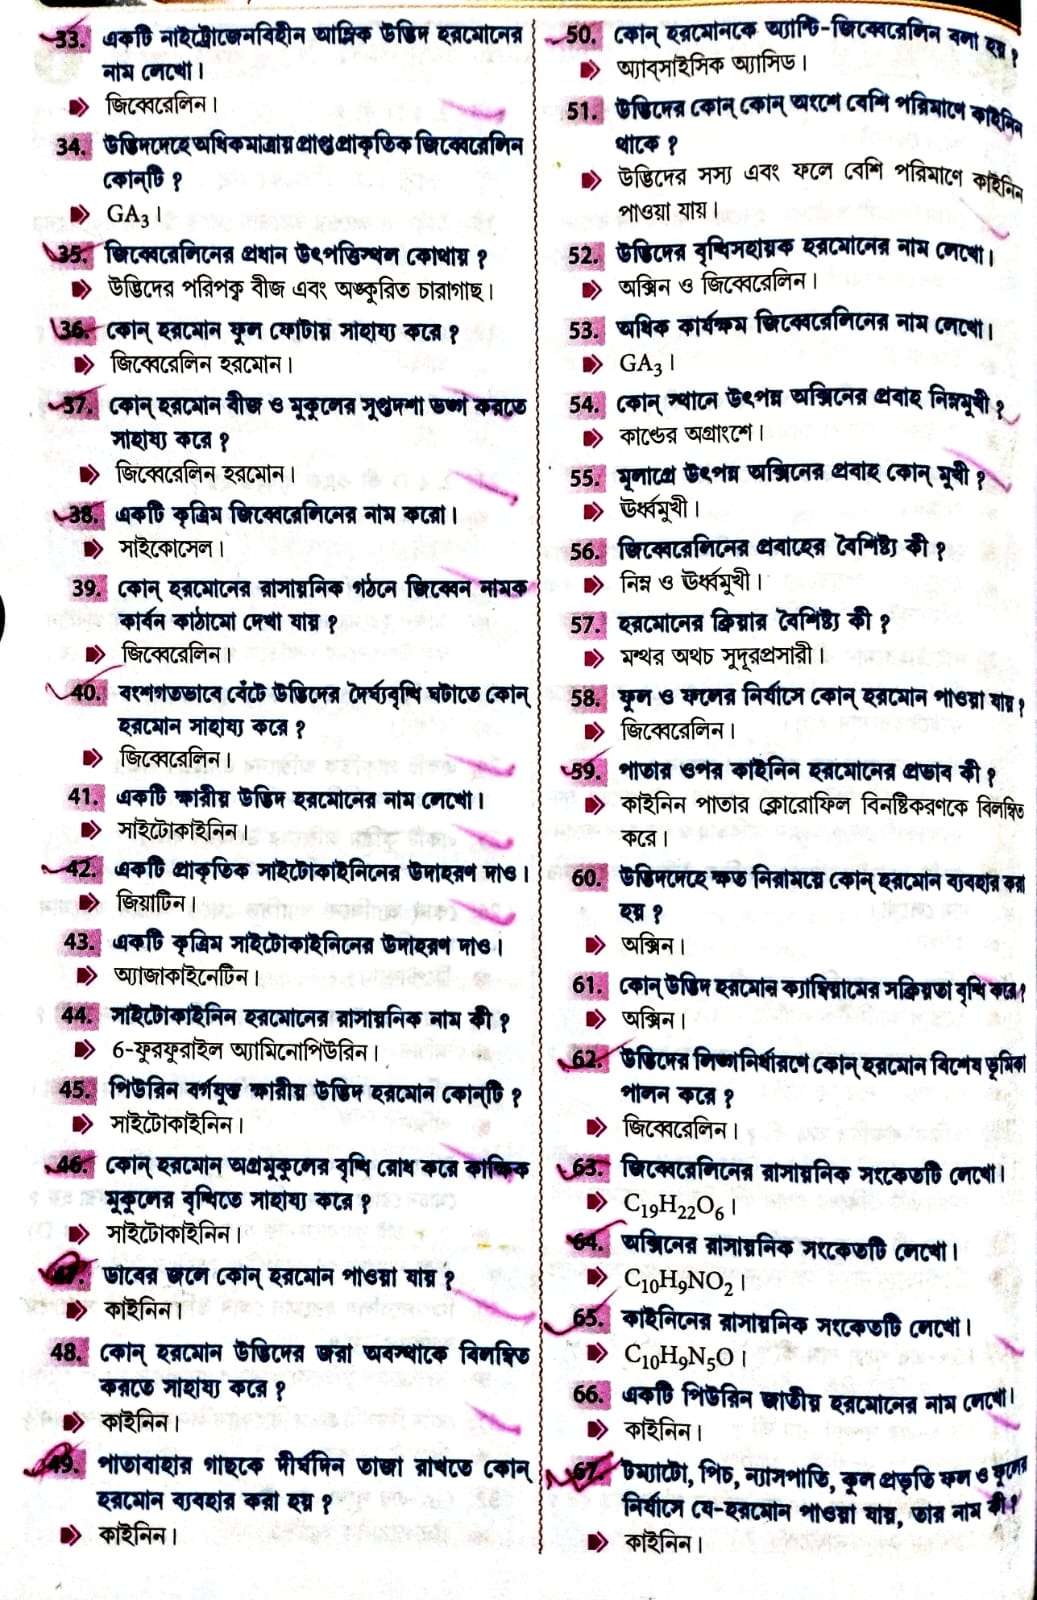 33. একটি নাইট্রোজেনবিহীন আম্লিক উদ্ভিদ হরমোনের
নাম লেখো।
জিব্বেরেলিন।
34. উদ্ভিদদেহে অধিকমাত্রায় প্রাপ্ত প্রাকৃতিক জিব্বেরেলিন
কোন্‌টি ?
GA₃।
35. জিব্বেরেলিনের প্রধান উৎপত্তিস্থল কোথায় ?
উদ্ভিদের পরিপক্ব বীজ এবং অঙ্কুরিত চারাগাছ।
36. কোন্ হরমোন ফুল ফোটায় সাহায্য করে ?
জিব্বেরেলিন হরমোন।
37. কোন্ হরমোন বীজ ও মুকুলের সুপ্তদশা ভঙ্গ করতে
সাহায্য করে ?
জিব্বেরেলিন হরমোন।
38. একটি কৃত্রিম জিব্বেরেলিনের নাম করো।
সাইকোসেল।
39. কোন্ হরমোনের রাসায়নিক গঠনে জিব্বেন নামক
কার্বন কাঠামো দেখা যায় ?
জিব্বেরেলিন।
40. বংশগতভাবে বেঁটে উদ্ভিদের দৈর্ঘ্যবৃদ্ধি ঘটাতে কোন্
হরমোন সাহায্য করে ?
জিব্বেরেলিন।
41. একটি ক্ষারীয় উদ্ভিদ হরমোনের নাম লেখো।
সাইটোকাইনিন।
42. একটি প্রাকৃতিক সাইটোকাইনিনের উদাহরণ দাও।
জিয়াটিন।
43. একটি কৃত্রিম সাইটোকাইনিনের উদাহরণ দাও।
অ্যাজাকাইনেটিন।
44. সাইটোকাইনিন হরমোনের রাসায়নিক নাম কী ?
6-ফুরফুরাইল অ্যামিনোপিউরিন।
45. পিউরিন বর্গযুক্ত ক্ষারীয় উদ্ভিদ হরমোন কোন্‌টি ?
সাইটোকাইনিন।
46. কোন্ হরমোন অগ্রমুকুলের বৃদ্ধি রোধ করে কাক্ষিক
মুকুলের বৃদ্ধিতে সাহায্য করে ?
সাইটোকাইনিন।
47. ডাবের জলে কোন্ হরমোন পাওয়া যায় ?
কাইনিন।
48. কোন্ হরমোন উদ্ভিদের জরা অবস্থাকে বিলম্বিত
করতে সাহায্য করে ?
কাইনিন।
49. পাতাবাহার গাছকে দীর্ঘদিন তাজা রাখতে কোন্
হরমোন ব্যবহার করা হয় ?
কাইনিন।
50. কোন্ হরমোনকে অ্যান্টি-জিব্বেরেলিন বলা হয় ?
অ্যাব্‌সাইসিক অ্যাসিড।
51. উদ্ভিদের কোন্ কোন্ অংশে বেশি পরিমাণে কাইনিন
থাকে ?
উদ্ভিদের সস্য এবং ফলে বেশি পরিমাণে কাইনিন
পাওয়া যায়।
52. উদ্ভিদের বৃদ্ধিসহায়ক হরমোনের নাম লেখো।
অক্সিন ও জিব্বেরেলিন।
53. অধিক কার্যক্ষম জিব্বেরেলিনের নাম লেখো।
GA₃।
54. কোন্ স্থানে উৎপন্ন অক্সিনের প্রবাহ নিম্নমুখী ?
কাণ্ডের অগ্রাংশে।
55. মূলাগ্রে উৎপন্ন অক্সিনের প্রবাহ কোন্ মুখী ?
ঊর্ধ্বমুখী।
56. জিব্বেরেলিনের প্রবাহের বৈশিষ্ট্য কী ?
নিম্ন ও ঊর্ধ্বমুখী।
57. হরমোনের ক্রিয়ার বৈশিষ্ট্য কী ?
মন্থর অথচ সুদূরপ্রসারী।
58. ফুল ও ফলের নির্যাসে কোন্ হরমোন পাওয়া যায় ?
জিব্বেরেলিন।
59. পাতার ওপর কাইনিন হরমোনের প্রভাব কী ?
কাইনিন পাতার ক্লোরোফিল বিনষ্টিকরণকে বিলম্বিত
করে।
60. উদ্ভিদদেহে ক্ষত নিরাময়ে কোন্ হরমোন ব্যবহার করা
হয় ?
অক্সিন।
61. কোন্ উদ্ভিদ হরমোন ক্যাম্বিয়ামের সক্রিয়তা বৃদ্ধি করে ?
অক্সিন।
62. উদ্ভিদের লিঙ্গনির্ধারণে কোন্ হরমোন বিশেষ ভূমিকা
পালন করে ?
জিব্বেরেলিন।
63. জিব্বেরেলিনের রাসায়নিক সংকেতটি লেখো।
C₁₉H₂₂O₆।
64. অক্সিনের রাসায়নিক সংকেতটি লেখো।
C₁₀H₉NO₂।
65. কাইনিনের রাসায়নিক সংকেতটি লেখো।
C₁₀H₉N₅O।
66. একটি পিউরিন জাতীয় হরমোনের নাম লেখো।
কাইনিন।
67. টম্যাটো, পিচ, ন্যাসপাতি, কুল প্রভৃতি ফল ও ফুলের
নির্যাসে যে-হরমোন পাওয়া যায়, তার নাম কী ?
কাইনিন।